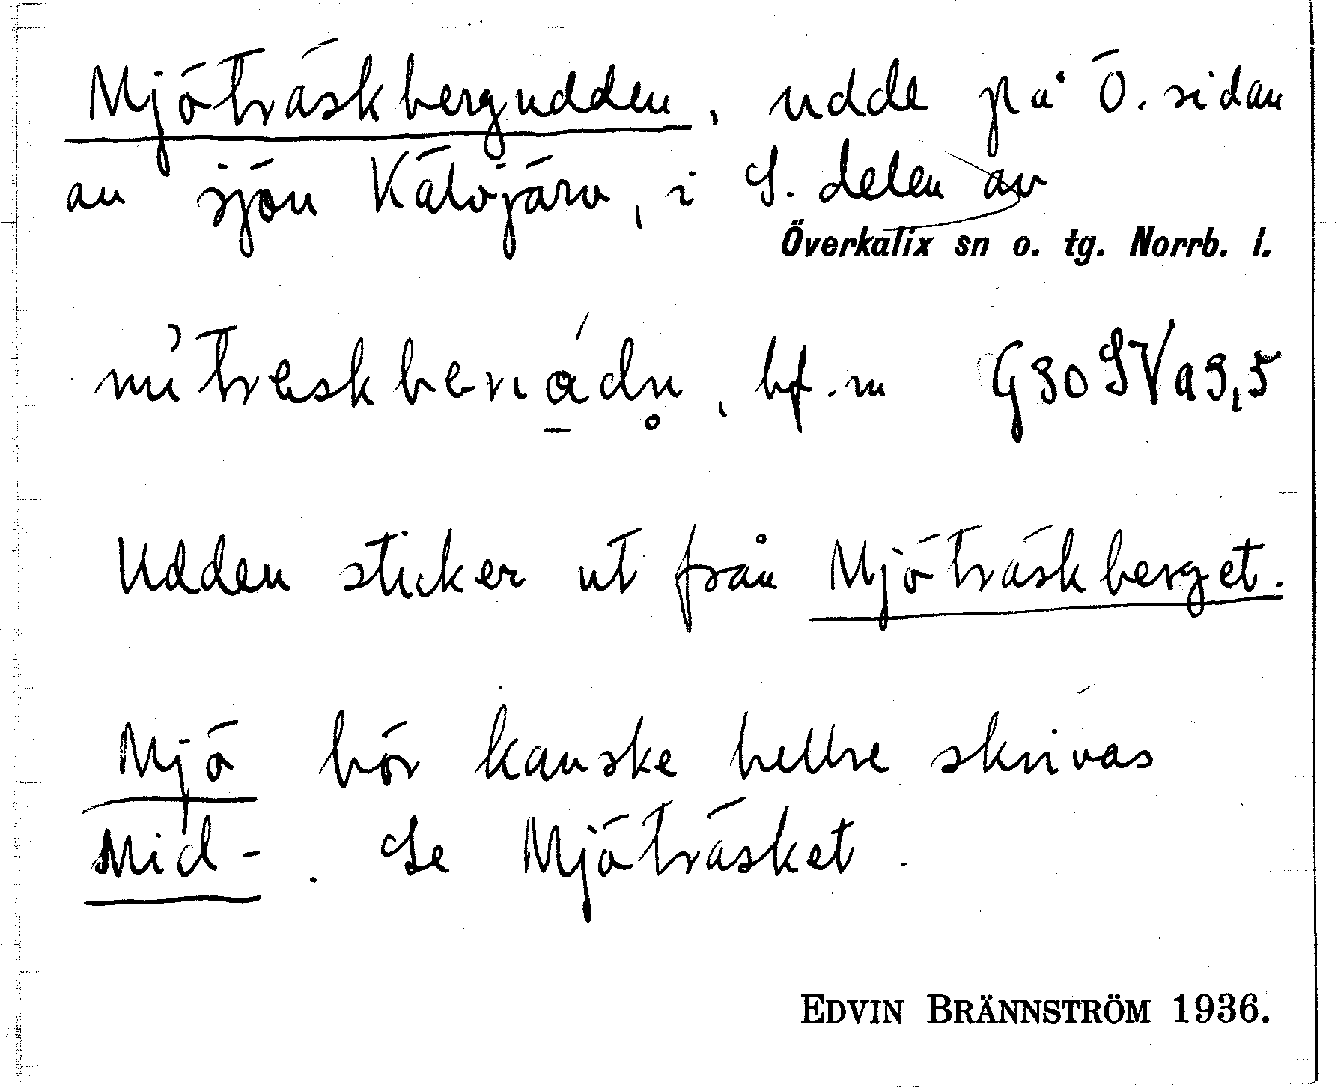 Mjöträskbergudden, udde på Ö. sidan
av sjön Kälvjärv, i S. delen av
Överkalix sn o. tg. Norrb. l.
bf. m G30SVa9,5
Udden sticker ut från Mjöträskberget.
Mjö bör kanske hellre skrivas
Mid-. Se Mjöträsket.
EDVIN BRÄNNSTRÖM 1936.